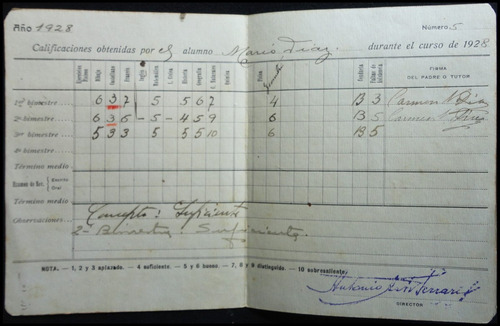 Año 1928
Número 5
Calificaciones obtenidas por el alumno Mario Díaz durante el curso de 1928
Dibujo
Francés
Inglés
Historia
Geografía
Conducta
FIRMA
DEL PADRE O TUTOR
1er bimestre 6 3 7 5 5 6 7 4 B 3 Carmen N. Díaz
2º bimestre 6 3 6 - 5 - 4 5 9 6 B 5 Carmen N. Díaz
3er bimestre 5 3 3 5 5 5 10 6 B 5
4º bimestre
Término medio
Examen de Rev. Escrito
Oral
Término medio
Observaciones Concepto: Suficiente
2º Bimestre: Suficiente.
NOTA. — 1, 2 y 3 aplazado. — 4 suficiente. — 5 y 6 bueno. — 7, 8 y 9 distinguido. — 10 sobresaliente.
Antonio
DIRECTOR